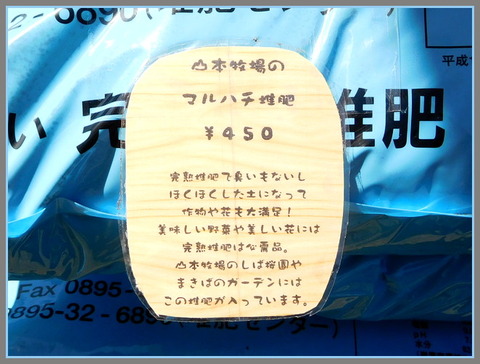 2-6890(堆肥センター)
平成
い 完 堆肥
山本牧場の
マルハチ堆肥
¥450
完熟堆肥で臭いもないし
ほくほくした土になって
作物や花も大満足!
美味しい野菜や美しい花には
完熟堆肥は必需品。
山本牧場のしば桜園や
まきばのガーデンには
この堆肥が入っています。
Fax 0895-
0895-32-6890(堆肥センター)